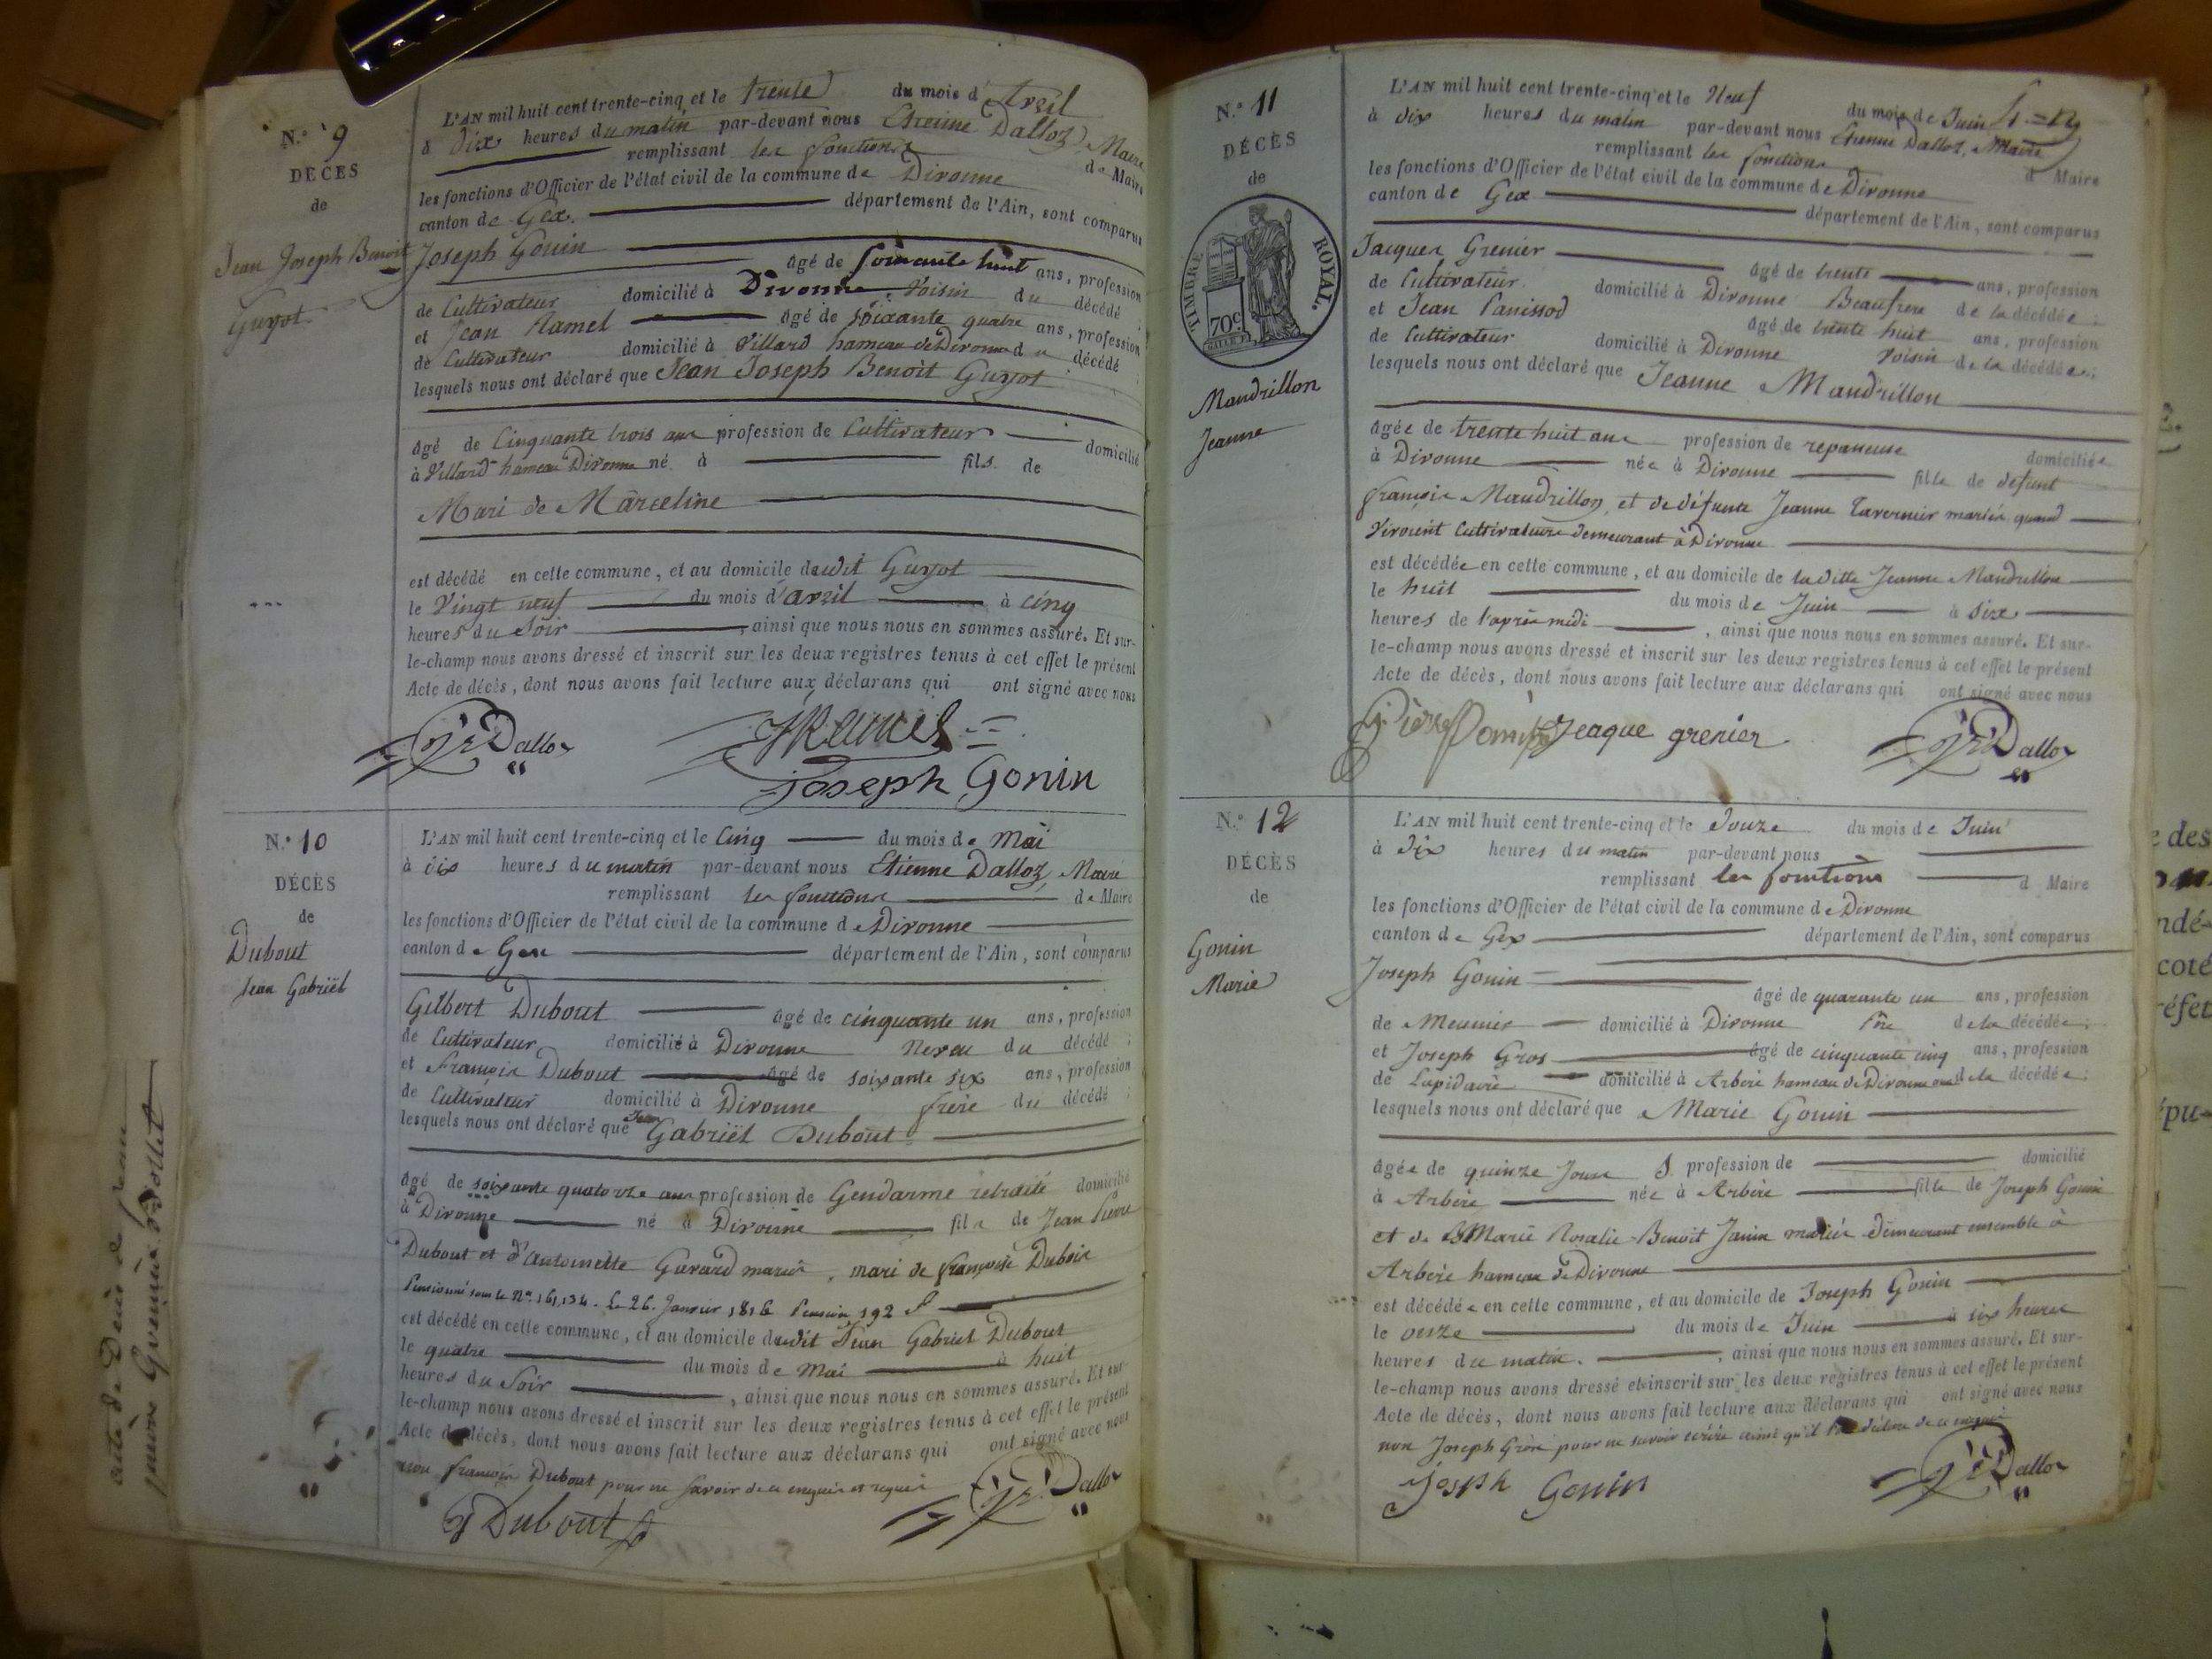 N.º 9
DÉCÈS
de
Jean Joseph Benoit
Guyot
L'AN mil huit cent trente-cinq et le trente du mois d'Avril
à dix heures du matin par-devant nous Etienne Dalloz, Maire
remplissant les fonctions de Maire
les fonctions d'Officier de l'état civil de la commune de Divonne
canton de Gex. département de l'Ain, sont comparus
Joseph Gonin
âgé de soixante huit ans, profession
de Cultivateur domicilié à Divonne Voisin du décédé ;
et Jean Ramel âgé de soixante quatre ans, profession
de Cultivateur domicilié à Villard hameau de Divonne d u décédé ;
lesquels nous ont déclaré que Jean Joseph Benoit Guyot
âgé de Cinquante trois ans profession de Cultivateur domicilié
à Villard hameau Divonne né à fils de
Mari de Marceline
est décédé en cette commune, et au domicile dudit Guyot
le Vingt neuf du mois d'avril à cinq
heures du Soir, ainsi que nous nous en sommes assuré. Et sur-
le-champ nous avons dressé et inscrit sur les deux registres tenus à cet effet le présent
Acte de décès, dont nous avons fait lecture aux déclarans qui ont signé avec nous
Dalloz JRamel
Joseph Gonin
N.º 10
DÉCÈS
de
Dubout
Jean Gabriël
L'AN mil huit cent trente-cinq et le Cinq du mois de Mai
à dix heures du matin par-devant nous Etienne Dalloz, Maire
remplissant les fonctions de Maire
les fonctions d'Officier de l'état civil de la commune de Divonne
canton de Gex département de l'Ain, sont comparus
Gilbert Dubout âgé de cinquante un ans, profession
de Cultivateur domicilié à Divonne Neveu du décédé ;
et François Dubout âgé de soixante six ans, profession
de Cultivateur domicilié à Divonne frère du décédé ;
lesquels nous ont déclaré que Jean Gabriël Dubout
âgé de soixante quatorze ans profession de Gendarme retraité domicilié
à Divonne né à Divonne fils de Jean Pierre
Dubout et d'Antoinette Girard mariés, mari de françoise Dubois
Pensionné sous le Nº. 161,134. Le 26. Janvier 1816 Pension 192 f
est décédé en cette commune, et au domicile dudit Jean Gabriel Dubout
le quatre du mois de Mai à huit
heures du Soir, ainsi que nous nous en sommes assuré. Et sur-
le-champ nous avons dressé et inscrit sur les deux registres tenus à cet effet le présent
Acte de décès, dont nous avons fait lecture aux déclarans qui ont signé avec nous
non françois Dubout pour ne savoir de ce enquis et requis
Dubout Dalloz
N.º 11
DÉCÈS
de
TIMBRE ROYAL.
70c
Mandrillon
Jeanne
L'AN mil huit cent trente-cinq et le Neuf du mois de Juin
à dix heures du matin par-devant nous Etienne Dalloz, Maire
remplissant les fonctions d Maire
les fonctions d'Officier de l'état civil de la commune de Divonne
canton de Gex département de l'Ain, sont comparus
Jacques Grenier
âgé de trente ans, profession
de Cultivateur domicilié à Divonne Beaufrere de la décédée ;
et Jean Panissod âgé de trente huit ans, profession
de Cultivateur domicilié à Divonne Voisin de la décédée ;
lesquels nous ont déclaré que Jeanne Mandrillon
âgée de trente huit ans profession de repasseuse domiciliée
à Divonne née à Divonne fille de défunt
françois Mandrillon, et de défunte Jeanne Tavernier mariés quand
Vivoient Cultivateurs demeurant à Divonne
est décédée en cette commune, et au domicile de la ditte Jeanne Mandrillon
le huit du mois de Juin à six
heures de l'après midi, ainsi que nous nous en sommes assuré. Et sur-
le-champ nous avons dressé et inscrit sur les deux registres tenus à cet effet le présent
Acte de décès, dont nous avons fait lecture aux déclarans qui ont signé avec nous
Jeaque grenier Dalloz
N.º 12
DÉCÈS
de
Gonin
Marie
L'AN mil huit cent trente-cinq et le douze du mois de Juin
à dix heures du matin par-devant nous
remplissant les fonctions d Maire
les fonctions d'Officier de l'état civil de la commune de Divonne
canton de Gex département de l'Ain, sont comparus
Joseph Gonin
âgé de quarante un ans, profession
de Meunier domicilié à Divonne Père de la décédée ;
et Joseph Gros âgé de cinquante cinq ans, profession
de Lapidaire domicilié à Arbère hameau de Divonne de la décédée ;
lesquels nous ont déclaré que Marie Gonin
âgée de quinze Jours profession de domicilié
à Arbère née à Arbère fille de Joseph Gonin
et de Marie Rosalie Benoit Janin mariés demeurant ensemble à
Arbère hameau de Divonne
est décédée en cette commune, et au domicile de Joseph Gonin
le onze du mois de Juin à six heures
heures du matin, ainsi que nous nous en sommes assuré. Et sur-
le-champ nous avons dressé et inscrit sur les deux registres tenus à cet effet le présent
Acte de décès, dont nous avons fait lecture aux déclarans qui ont signé avec nous
non Joseph Gros pour ne savoir écrire ainsi qu'il l'a déclaré de ce enquis
Joseph Gonin Dalloz
acte de Décès de Jean
e des
ndé-
coté
réfet
épu-